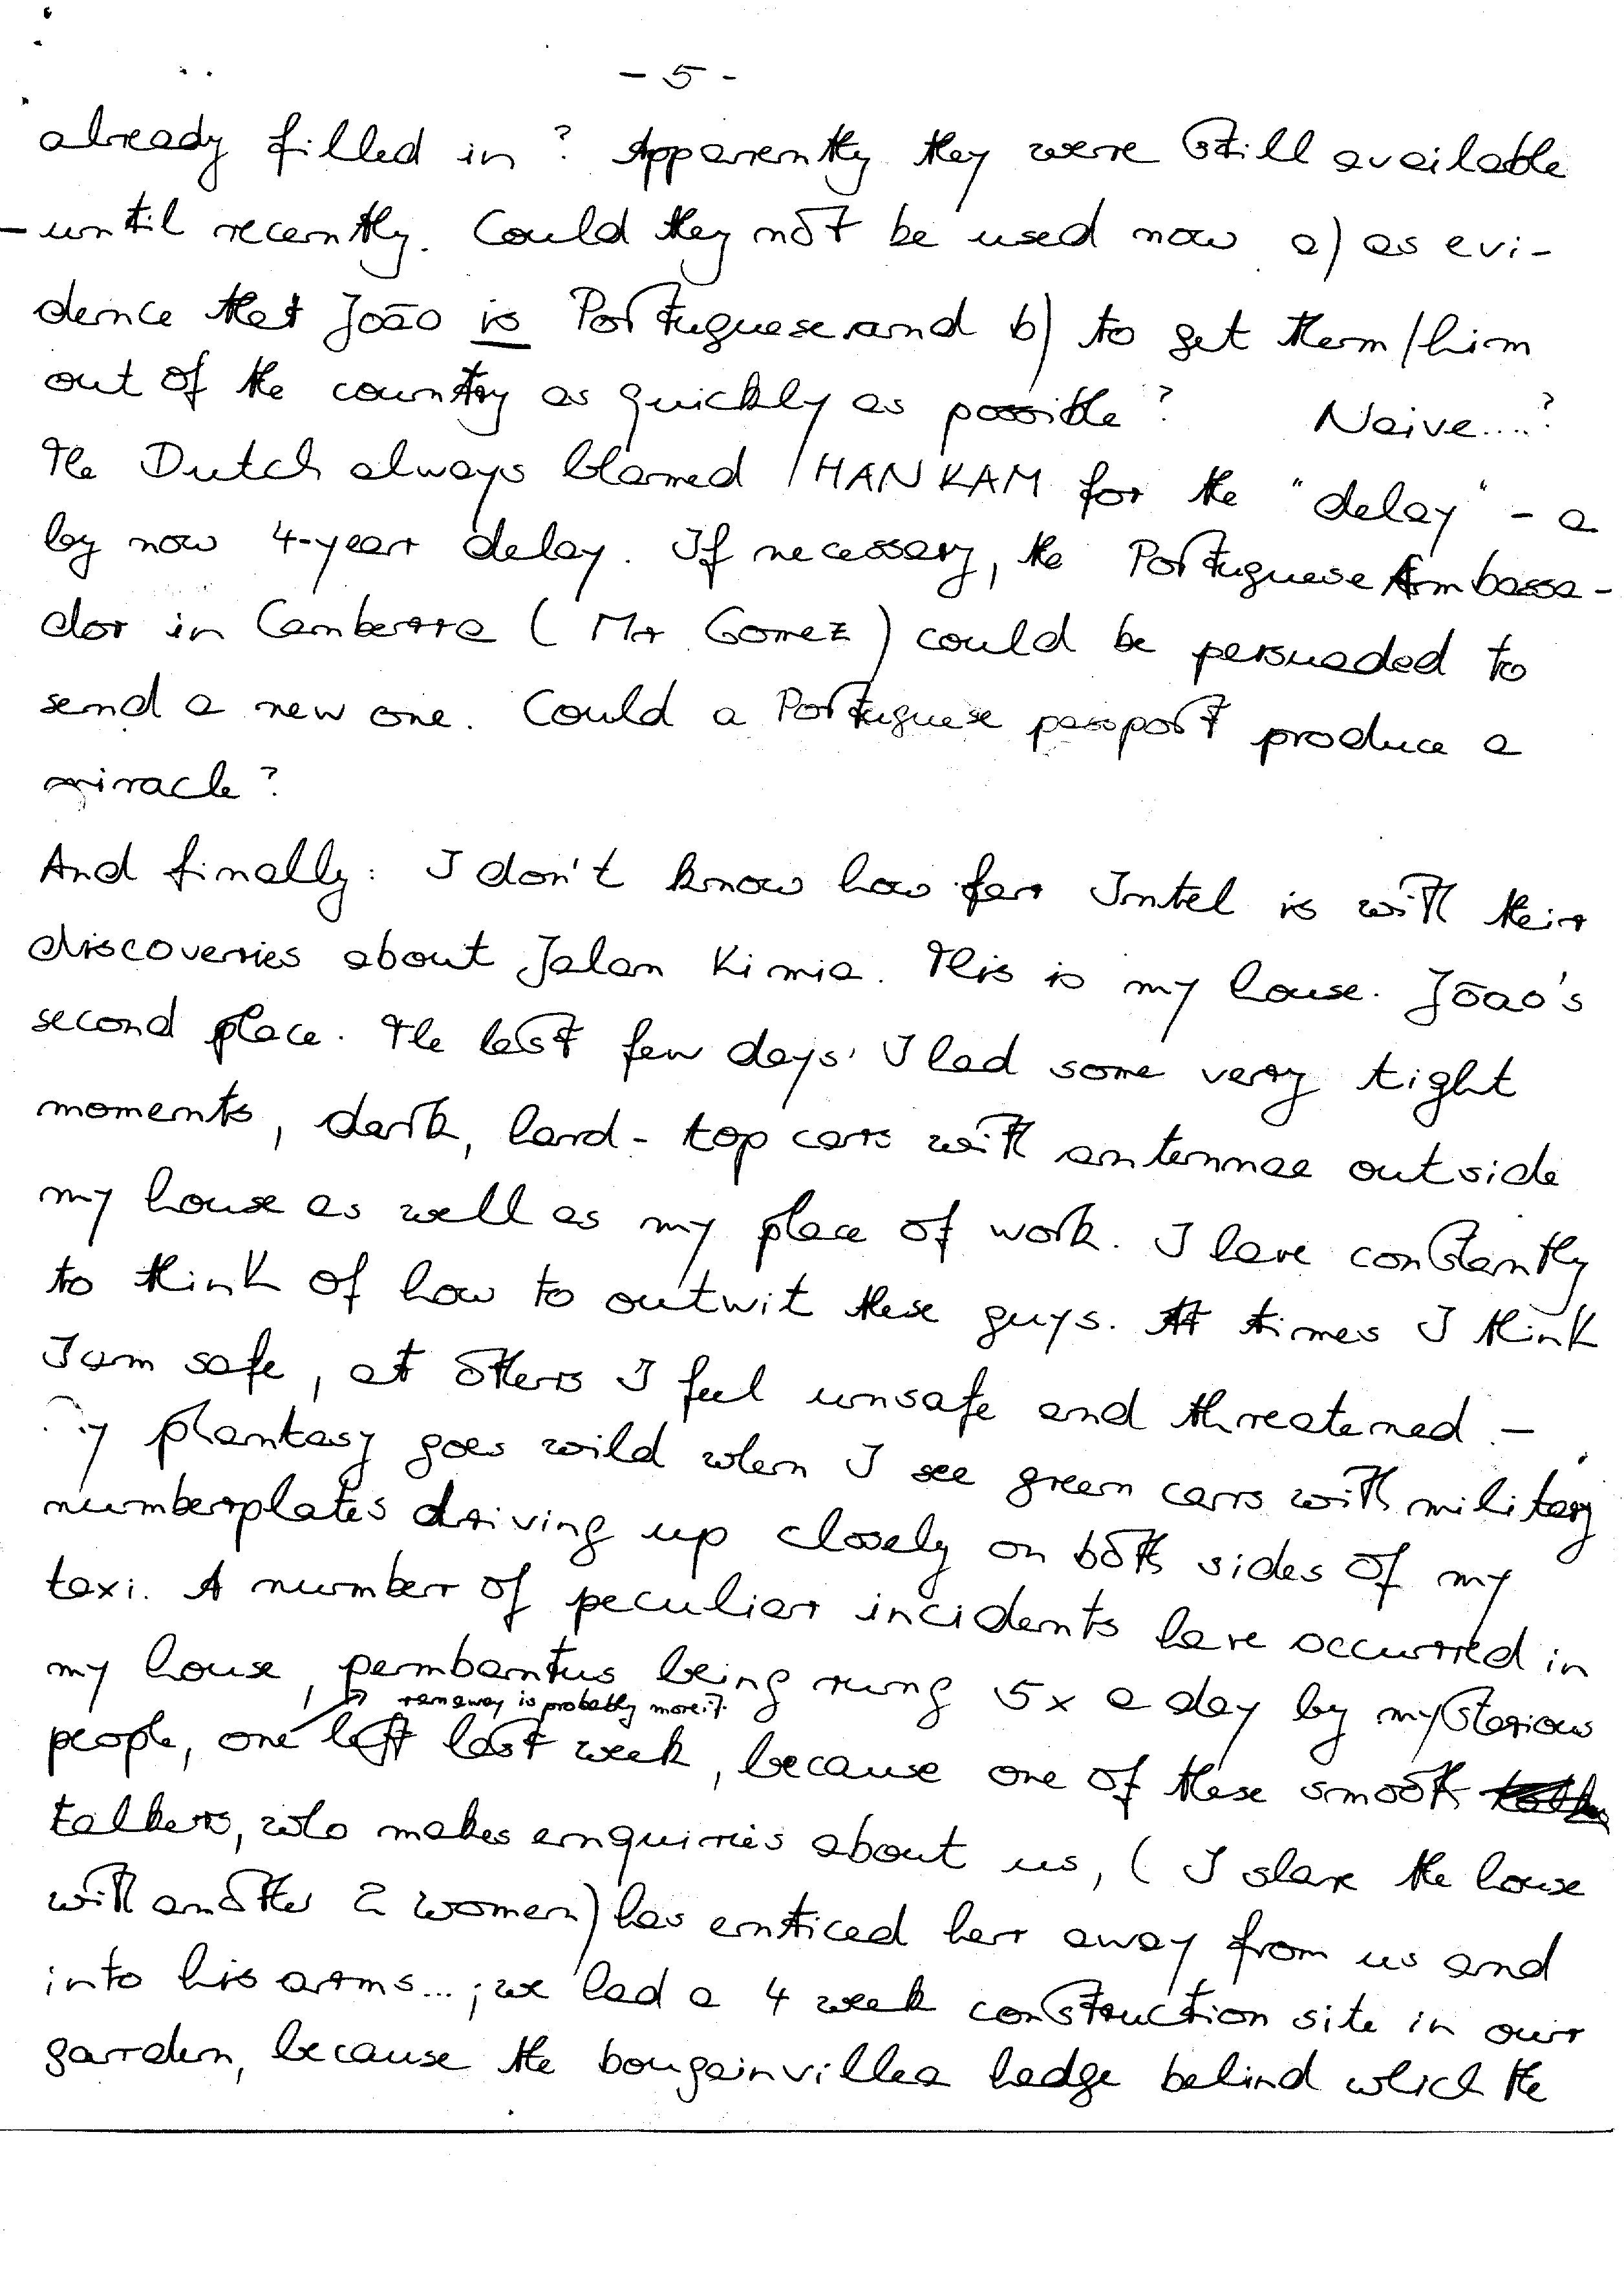 - 5 -
already filled in? Apparently they were still available
- until recently. Could they not be used now a) as evi-
dence that João is Portuguese and b) to get them/him
out of the country as quickly as possible? Naive....?
The Dutch always blamed HANKAM for the "delay" - a
by now 4-year delay. If necessary, the Portuguese Ambassa-
dor in Canberra (Mr Gomez) could be persuaded to
send a new one. Could a Portuguese passport produce a
miracle?
And finally: I don't know how far Intel is with their
discoveries about Jalan Kimia. This is my house. Jõao's
second place. The last few days I had some very tight
moments, dark, hard-top cars with antennae outside
my house as well as my place of work. I have constantly
to think of how to outwit these guys. At times I think
I am safe, at others I feel unsafe and threatened -
My phantasy goes wild when I see green cars with military
numberplates driving up closely on both sides of my
taxi. A number of peculiar incidents have occurred in
my house, pembantus being rung 5x a day by mysterious
ranaway is probably more it.
people, one left last week, because one of these smooth
talkers, who makes enquiries about us, (I share the house
with another 2 women) has enticed her away from us and
into his arms...; we had a 4 week construction site in our
garden, because the bougainvillea hedge behind which the